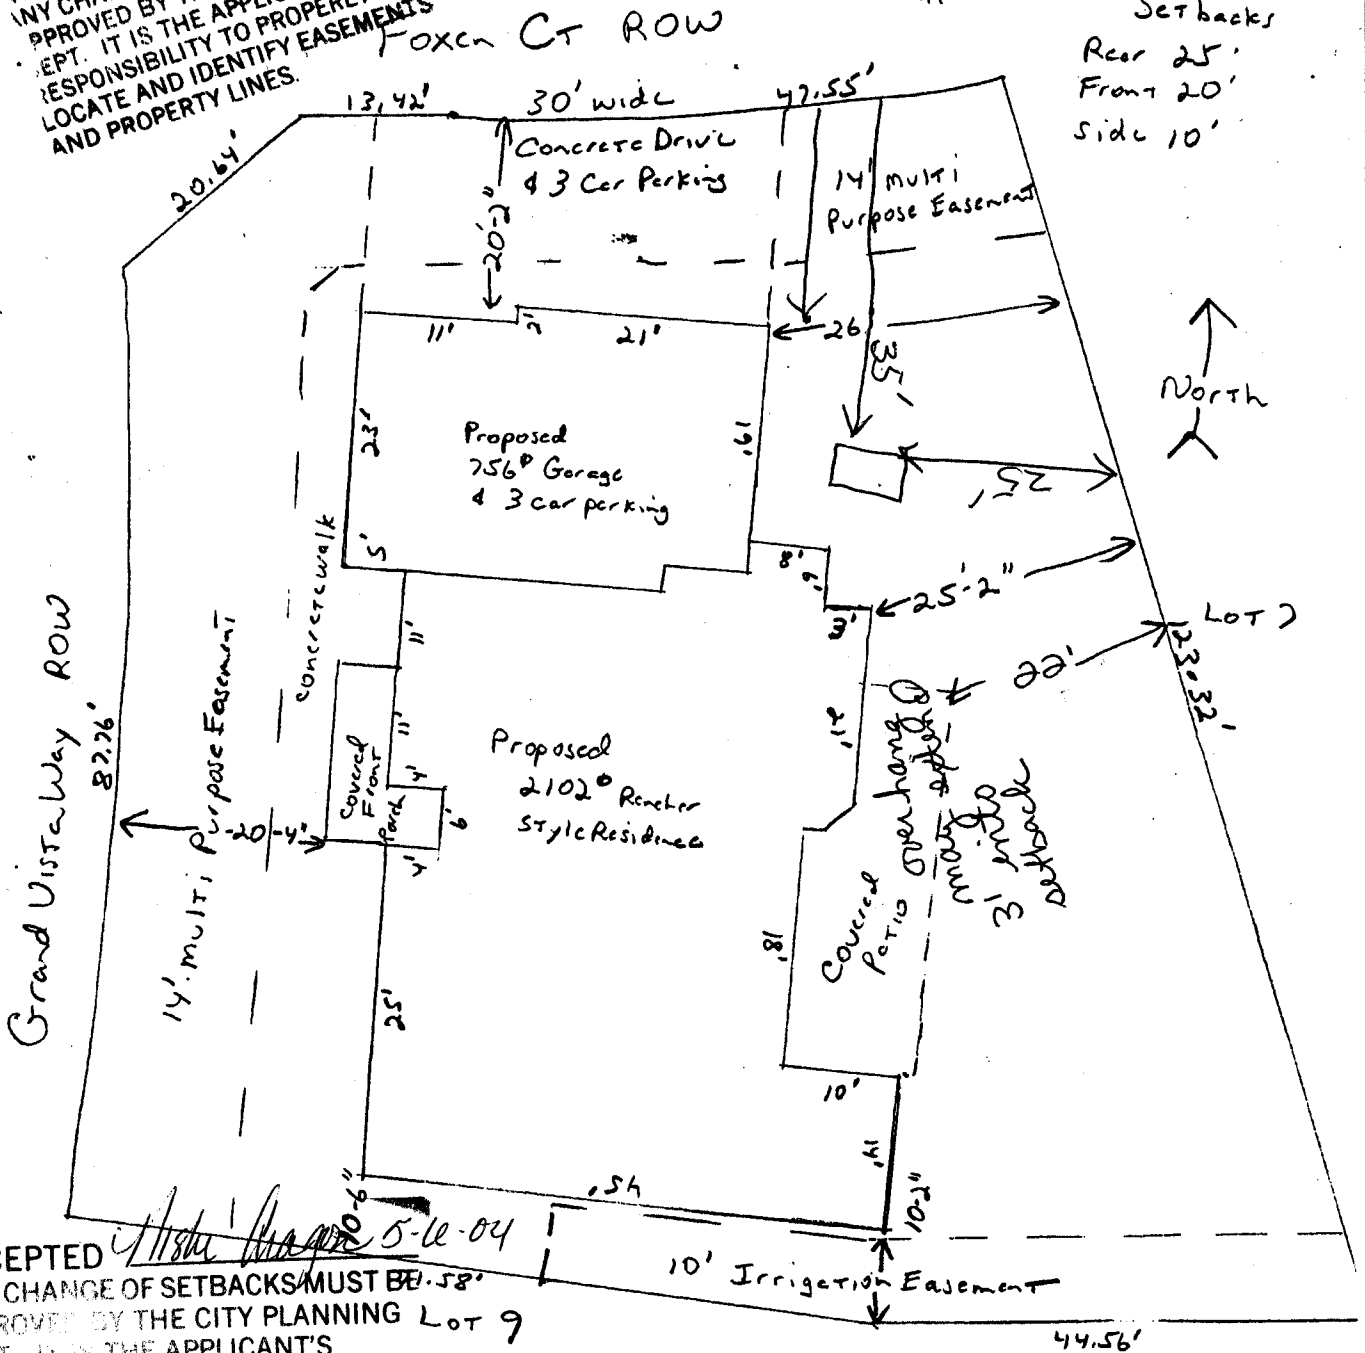 ANY CHA
PPROVED BY T
EPT. IT IS THE APPLIC
RESPONSIBILITY TO PROPERL
LOCATE AND IDENTIFY EASEMENTS
AND PROPERTY LINES.
Foxen CT ROW
Setbacks
Rear 25'
Front 20'
Side 10'
13,42'
30' wide
47.55'
20.64'
Concrete Drive
& 3 Car Parking
14' multi
Purpose Easement
20'-2"
11'
2'
21'
26
35'
North
23'
Proposed
756 Garage
& 3 car parking
19'
25'
5'
8'
6'
3'
25'-2"
LOT 7
concrete walk
11'
22'
123.32'
Grand Vista Way ROW
87.76'
14' multi Purpose Easement
Covered
Front
Porch
11'
4'
6'
4'
20'-4"
Proposed
2102 Rancher
Style Residence
21'
Overhang
may extend
3' into
setback
Covered
Patio
18'
25'
10'
14'
10-6"
45'
10-2"
10' Irrigation Easement
CEPTED 5-6-04
CHANGE OF SETBACKS MUST BE
.58'
ROVED BY THE CITY PLANNING
LOT 9
T. IT IS THE APPLICANT'S
44.56'